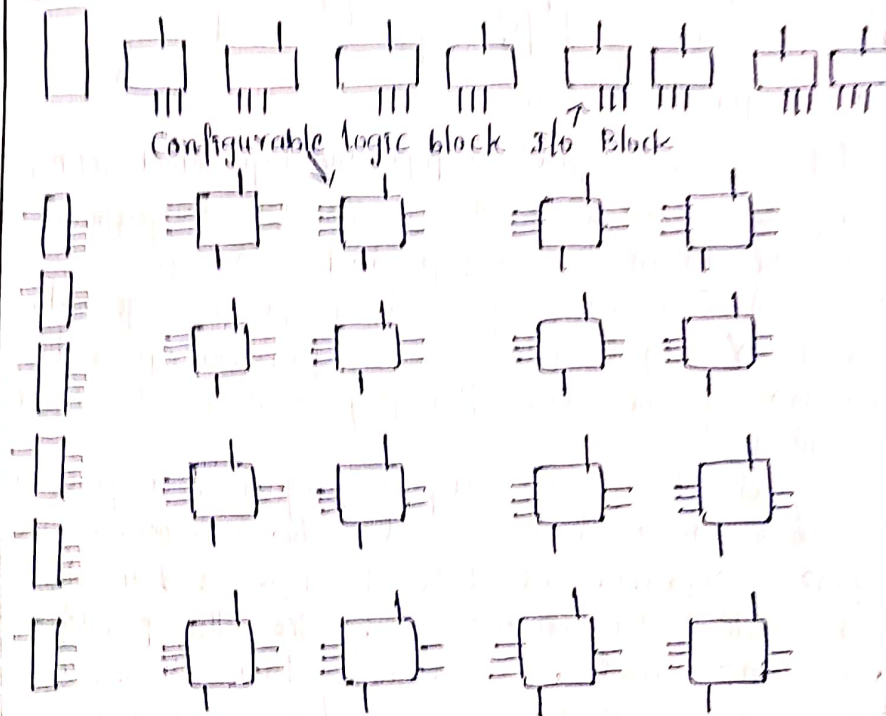 Configurable logic block I/o Block